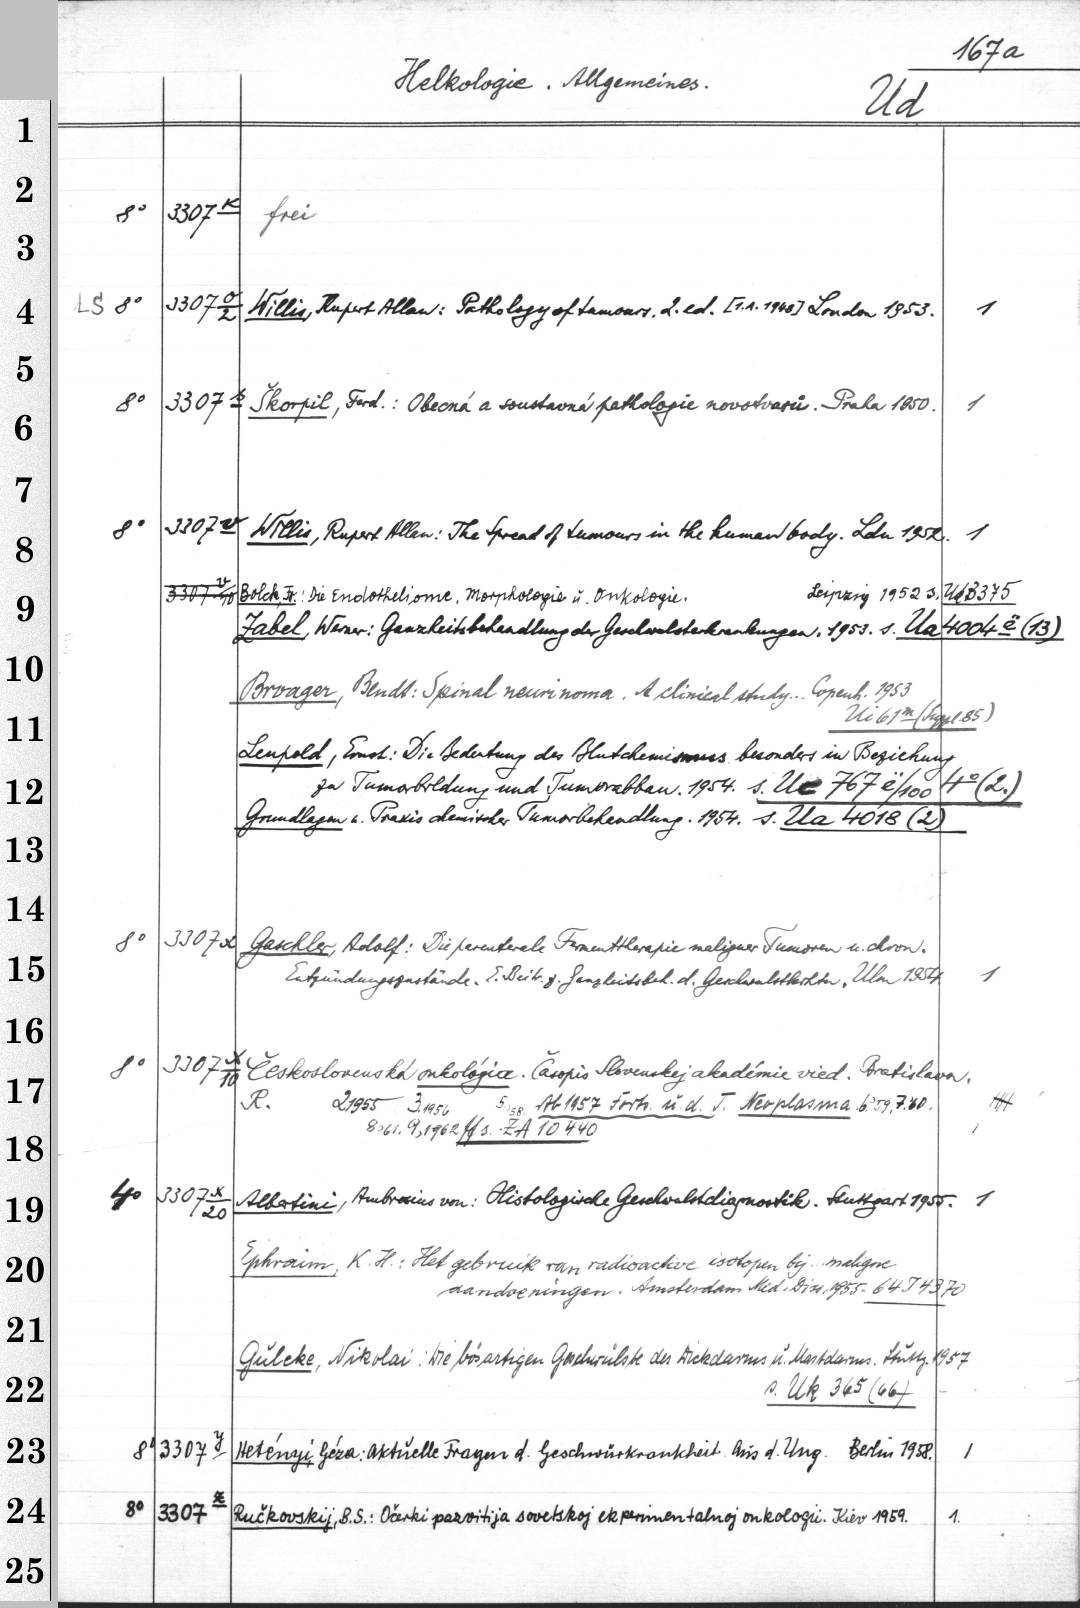 167a
Helkologie. Allgemeines.
Ud
1
2
8° 3307 K frei
3
4 LS 8° 3307 σ/2 Willis, Rupert Allan: Pathology of tumours. 2. ed. [1.A. 1948] London 1953. 1
5
8° 3307 s Škorpil, Ferd.: Obecná a soustavná pathologie novotvarů. Praha 1950. 1
6
7
8° 3307 v Willis, Rupert Allan: The Spread of tumours in the human body. Ldn 1952. 1
8
9 3307 v/10 Bolck, Fr.: Die Endotheliome. Morphologie u. Onkologie. Leipzig 1952 s. Ud 3375
Zabel, Werner: Ganzheitsbehandlung der Geschwulsterkrankungen. 1953. s. Ua 4004 ë (13)
10
Broager, Bendt: Spinal neurinoma. A clinical study... Copenh. 1953
11 Ui 61 m (Suppl. 85)
Leupold, Ernst: Die Bedeutung des Blutchemismus besonders in Beziehung
12 zu Tumorbildung und Tumorabbau. 1954. s. Ue 767 ë/100 4° (2.)
Grundlagen u. Praxis chemischer Tumorbehandlung. 1954. s. Ua 4018 (2)
13
14
8° 3307 x Gaschler, Adolf: Die parenterale Fermenttherapie maligner Tumoren u. chron.
15 Entzündungszustände. E. Beitr. z. Ganzheitsbeh. d. Geschwulstkrhtn, Ulm 1954. 1
16
8° 3307 x/10 Československá onkológia. Časopis Slovenskej akadémie vied. Bratislava.
17 R. 2,1955 3,1956 5,58. Ab 1957 Forts. u. d. T. Neoplasma 6.59, 7.60.
18 8,61. 9,1962 ff s. ZA 10 440
4° 3307 x/20 Albertini, Ambrosius von: Histologische Geschwulstdiagnostik. Stuttgart 1955. 1
19
20 Ephraim, K. H.: Het gebruik van radioactive isotopen bij... maligne
aandoeningen. Amsterdam Med. Diss. 1955 - 64 J 4370
21
Gülcke, Nikolai: Die bösartigen Geschwülste des Dickdarms u. Mastdarms. Stuttg. 1957
22 s. Uk 365 (66)
23 8° 3307 y Hetényi, Géza: Aktuelle Fragen d. Geschwürkrankheit. Aus d. Ung. Berlin 1958. 1
24 8° 3307 z Ručkovskij, B.S.: Očerki pazvitija sovetskoj eksperimentalnoj onkologii. Kiev 1959. 1.
25